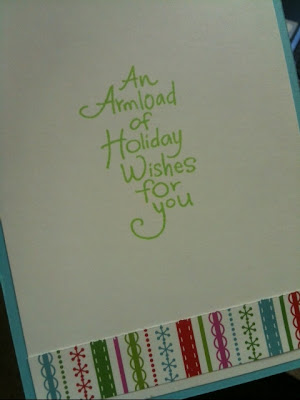 An
Armload
of
Holiday
Wishes
for
you